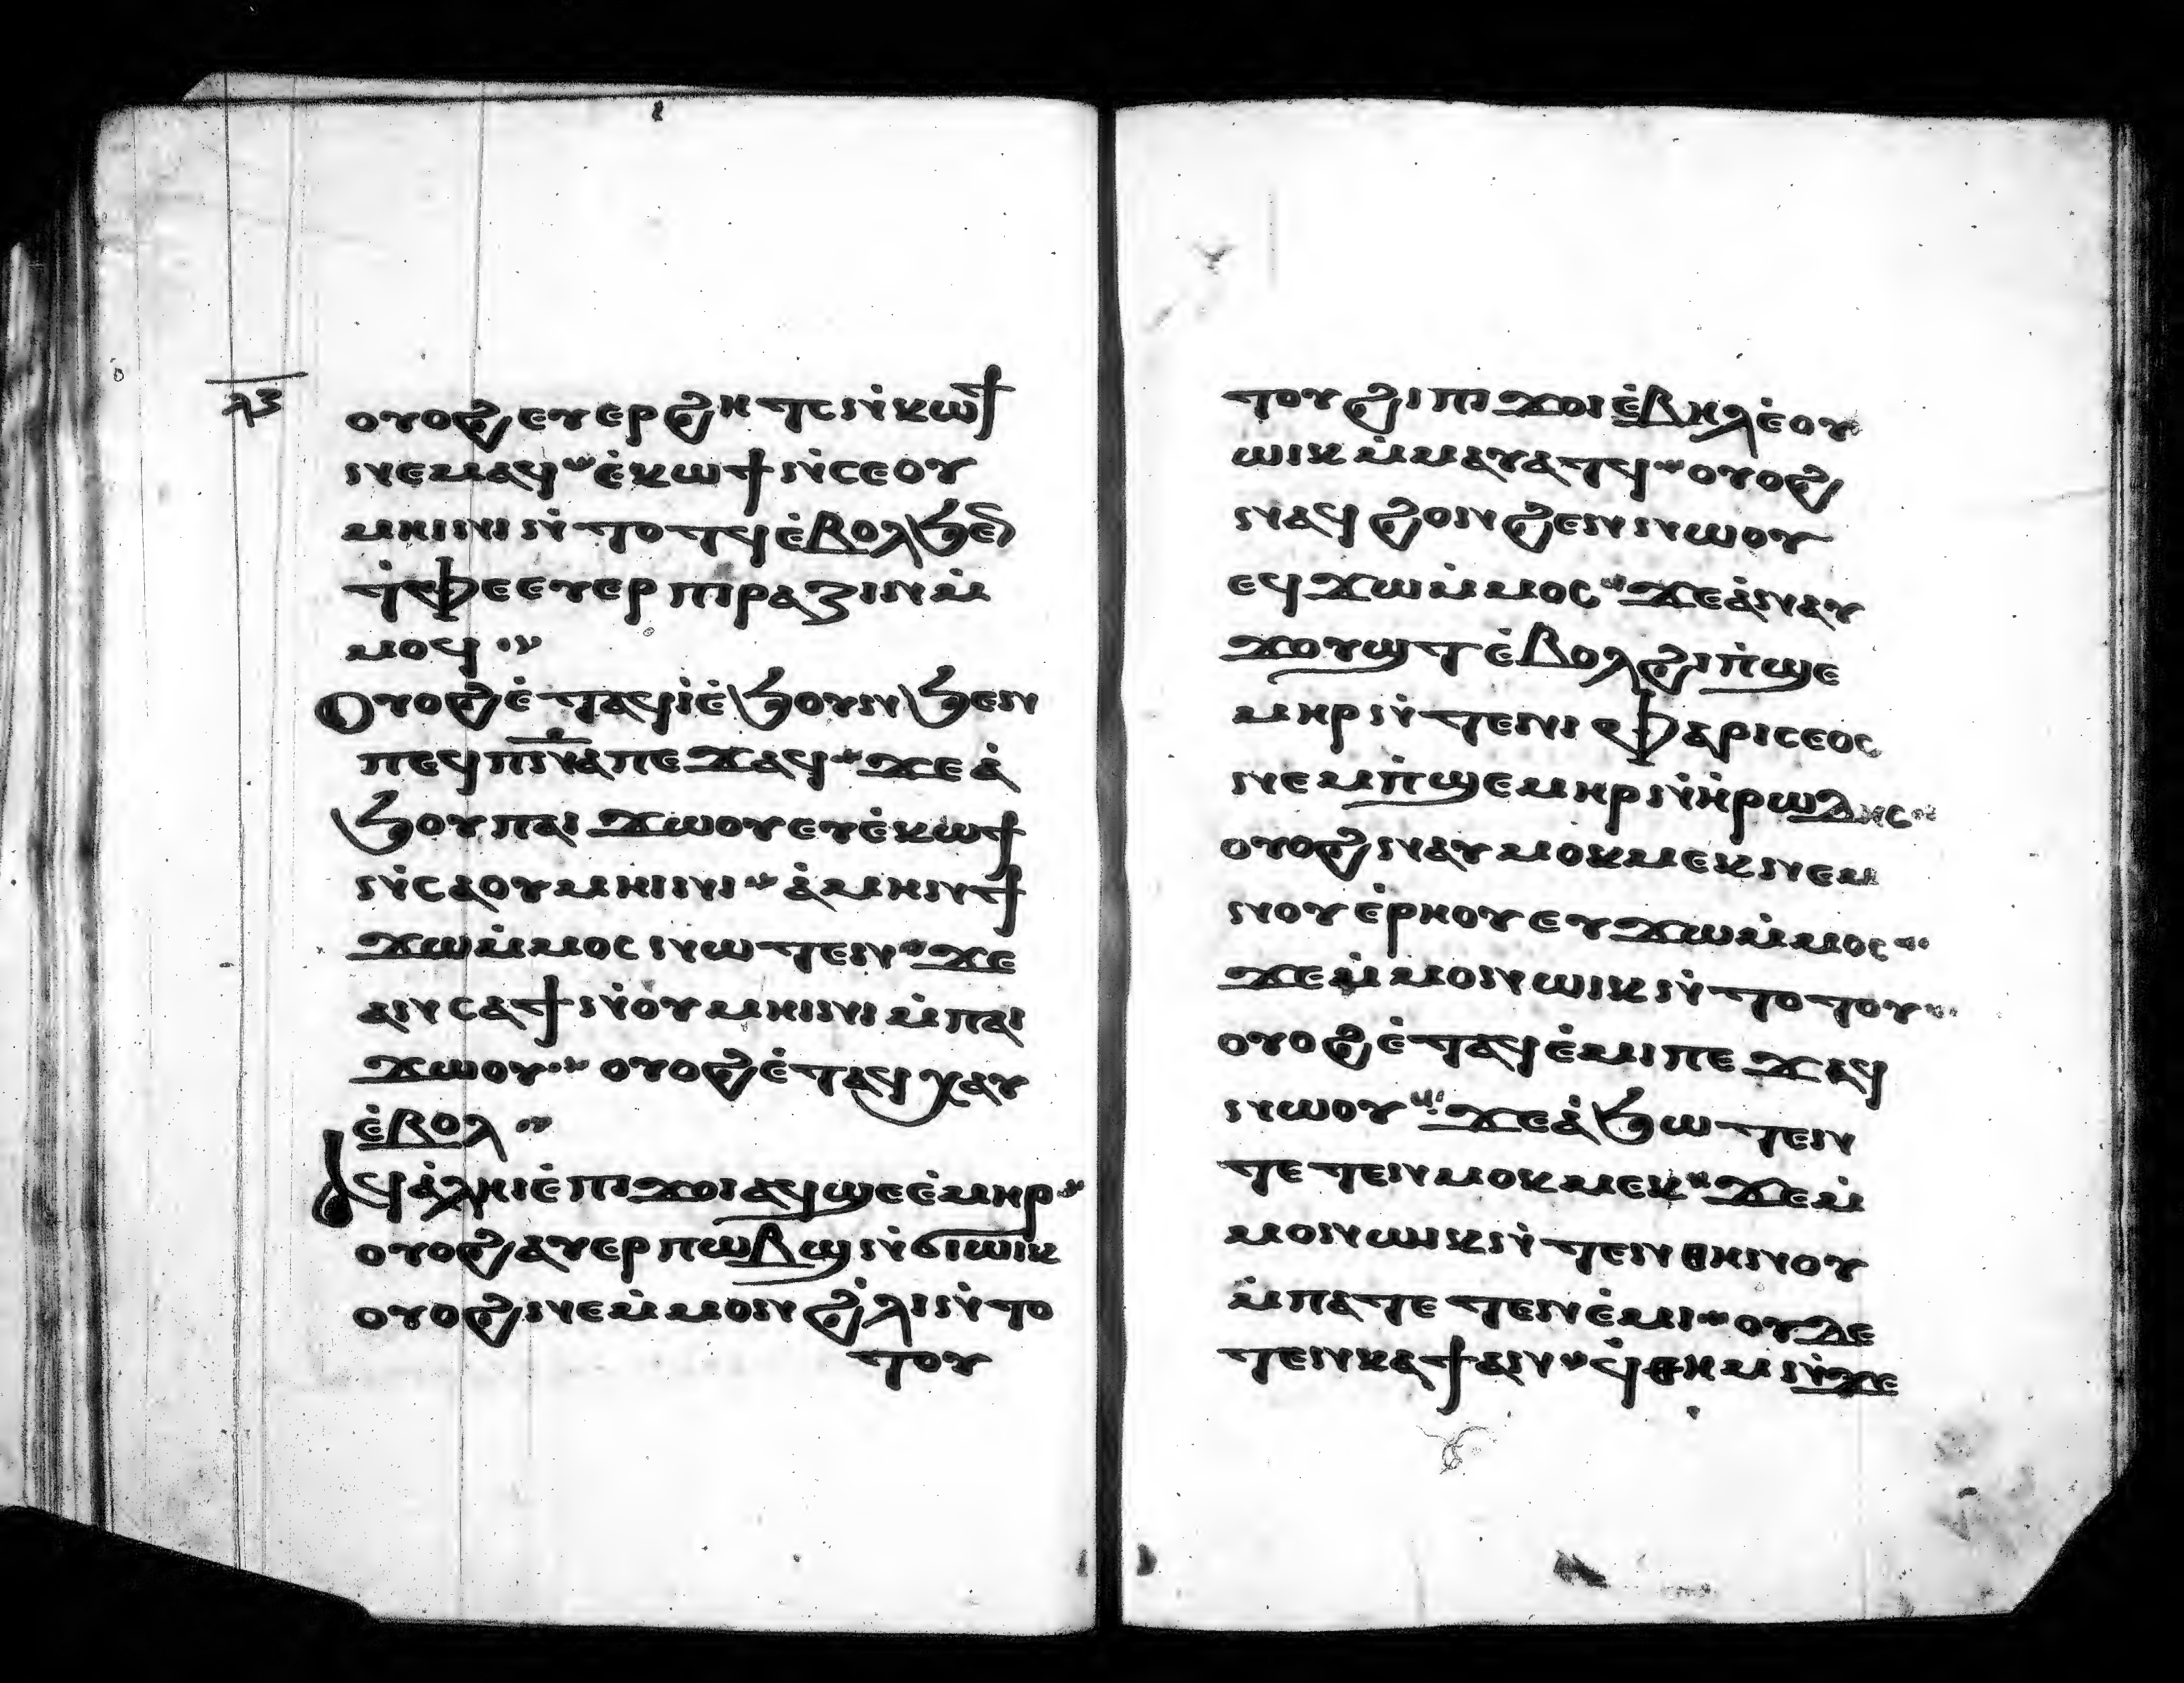 ⲗⲍ
ⲟⲩⲟϩⲉⲩⲉⲣϩⲏⲧⲥⲛ̇ⲕⲱϯ
ⲛⲉⲙⲁϥ ⲉ̇ⲕⲱϯⲛ̇ⲥⲉⲟⲩ
ⲙⲏⲓⲛⲓⲛ̇ⲧⲟⲧϥⲉ̇ⲃⲟⲗϧⲉⲛ
ⲧ̇ⲫⲉⲉⲩⲉⲣⲡⲓⲣⲁⲍⲓⲛⲙ̇
ⲙⲟϥ
Ⲟⲩⲟϩⲉ̇ⲧⲁϥϥⲓⲉ̇ϧⲟⲩⲛϧⲉⲛ
ⲡⲉϥⲡ̅ⲛ̅ⲁ̅ⲡⲉϫⲁϥ ϫⲉⲁ̇
ϧⲟⲩⲡⲁⲓϫⲱⲟⲩⲉⲩⲉ̇ⲕⲱϯ
ⲛ̇ⲥⲁⲟⲩⲙⲏⲓⲛⲓ ⲁ̇ⲙⲏⲛϯ
ϫⲱⲙ̇ⲙⲟⲥⲛⲱⲧⲉⲛ ϫⲉ
ⲁⲛⲥⲁϯⲛ̇ⲟⲩⲙⲏⲓⲛⲓⲙ̇ⲡⲁⲓ
ϫⲱⲟⲩ ⲟⲩⲟϩⲉ̇ⲧⲁϥⲭⲁⲩ
ⲉ̇ⲃⲟⲗ
ⲁϥⲁ̇ⲗⲏⲓⲉ̇ⲡⲓϫⲟⲓⲁϥϣⲉⲉ̇ⲙⲏⲣ
ⲟⲩⲟϩⲁⲩⲉⲣⲡⲱⲃϣⲛ̇ϭⲓⲱⲓⲕ
ⲟⲩⲟϩⲛⲉⲙ̇ⲙⲟⲛϩ̇ⲗⲓⲛ̇ⲧⲟ
ⲧⲟⲩ
ⲧⲟⲩϩⲓⲡⲓϫⲟⲓⲉ̇ⲃⲏⲗⲉ̇ⲟⲩ
ⲱⲓⲕⲙ̇ⲙⲁⲩⲁⲧϥ ⲟⲩⲟϩ
ⲛⲁϥϩⲟⲛϩⲉⲛⲛⲱⲟⲩ
ⲉϥϫⲱⲙ̇ⲙⲟⲥ ϫⲉⲁ̇ⲛⲁⲩ
ϫⲟⲩϣⲧⲉ̇ⲃⲟⲗϩⲓⲡ̇ϣⲉ
ⲙⲏⲣⲛ̇ⲧⲉⲛⲓⲫⲁⲣⲓⲥⲉⲟⲥ
ⲛⲉⲙⲡ̇ϣⲉⲙⲏⲣⲛ̇ⲏ̇ⲣⲱⲇⲏⲥ
ⲟⲩⲟϩⲛⲁⲩⲙⲟⲕⲙⲉⲕⲛⲉⲙ
ⲛⲟⲩⲉ̇ⲣⲏⲟⲩⲉⲩϫⲱⲙ̇ⲙⲟⲥ
ϫⲉⲙ̇ⲙⲟⲛⲱⲓⲕⲛ̇ⲧⲟⲧⲟⲩ
ⲟⲩⲟϩⲉ̇ⲧⲁϥⲉ̇ⲙⲓⲡⲉϫⲁϥ
ⲛⲱⲟⲩ ϫⲉⲁ̇ϧⲱⲧⲉⲛ
ⲧⲉⲧⲉⲛⲙⲟⲕⲙⲉⲕ ϫⲉⲙ̇
ⲙⲟⲛⲱⲓⲕⲛ̇ⲧⲉⲛⲑⲏⲛⲟⲩ
ⲙ̇ⲡⲁⲧⲉⲧⲉⲛⲉ̇ⲙⲓ ⲟⲩⲇⲉ
ⲧⲉⲛⲕⲁϯⲁⲛ ϥ̇ⲑⲏⲙⲛ̇ϫⲉ